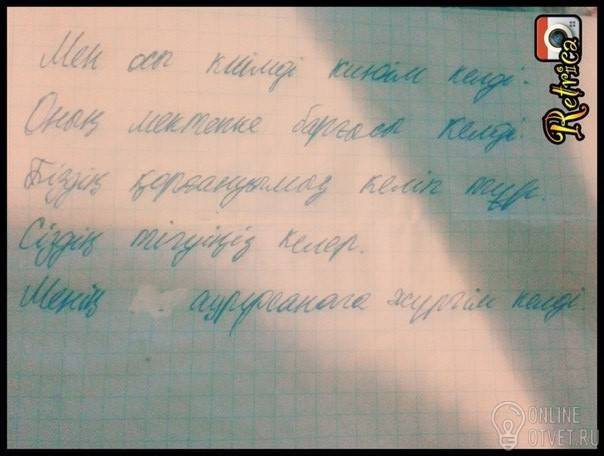 Мен осы киімді кигім келді.
Оның мектепке барғысы келді.
Біздің қорғанымыз келіп тұр.
Сіздің тігіңіз келер.
Менің ауруханаға жүргім келді
Retrica
ONLINE
OTVET.RU